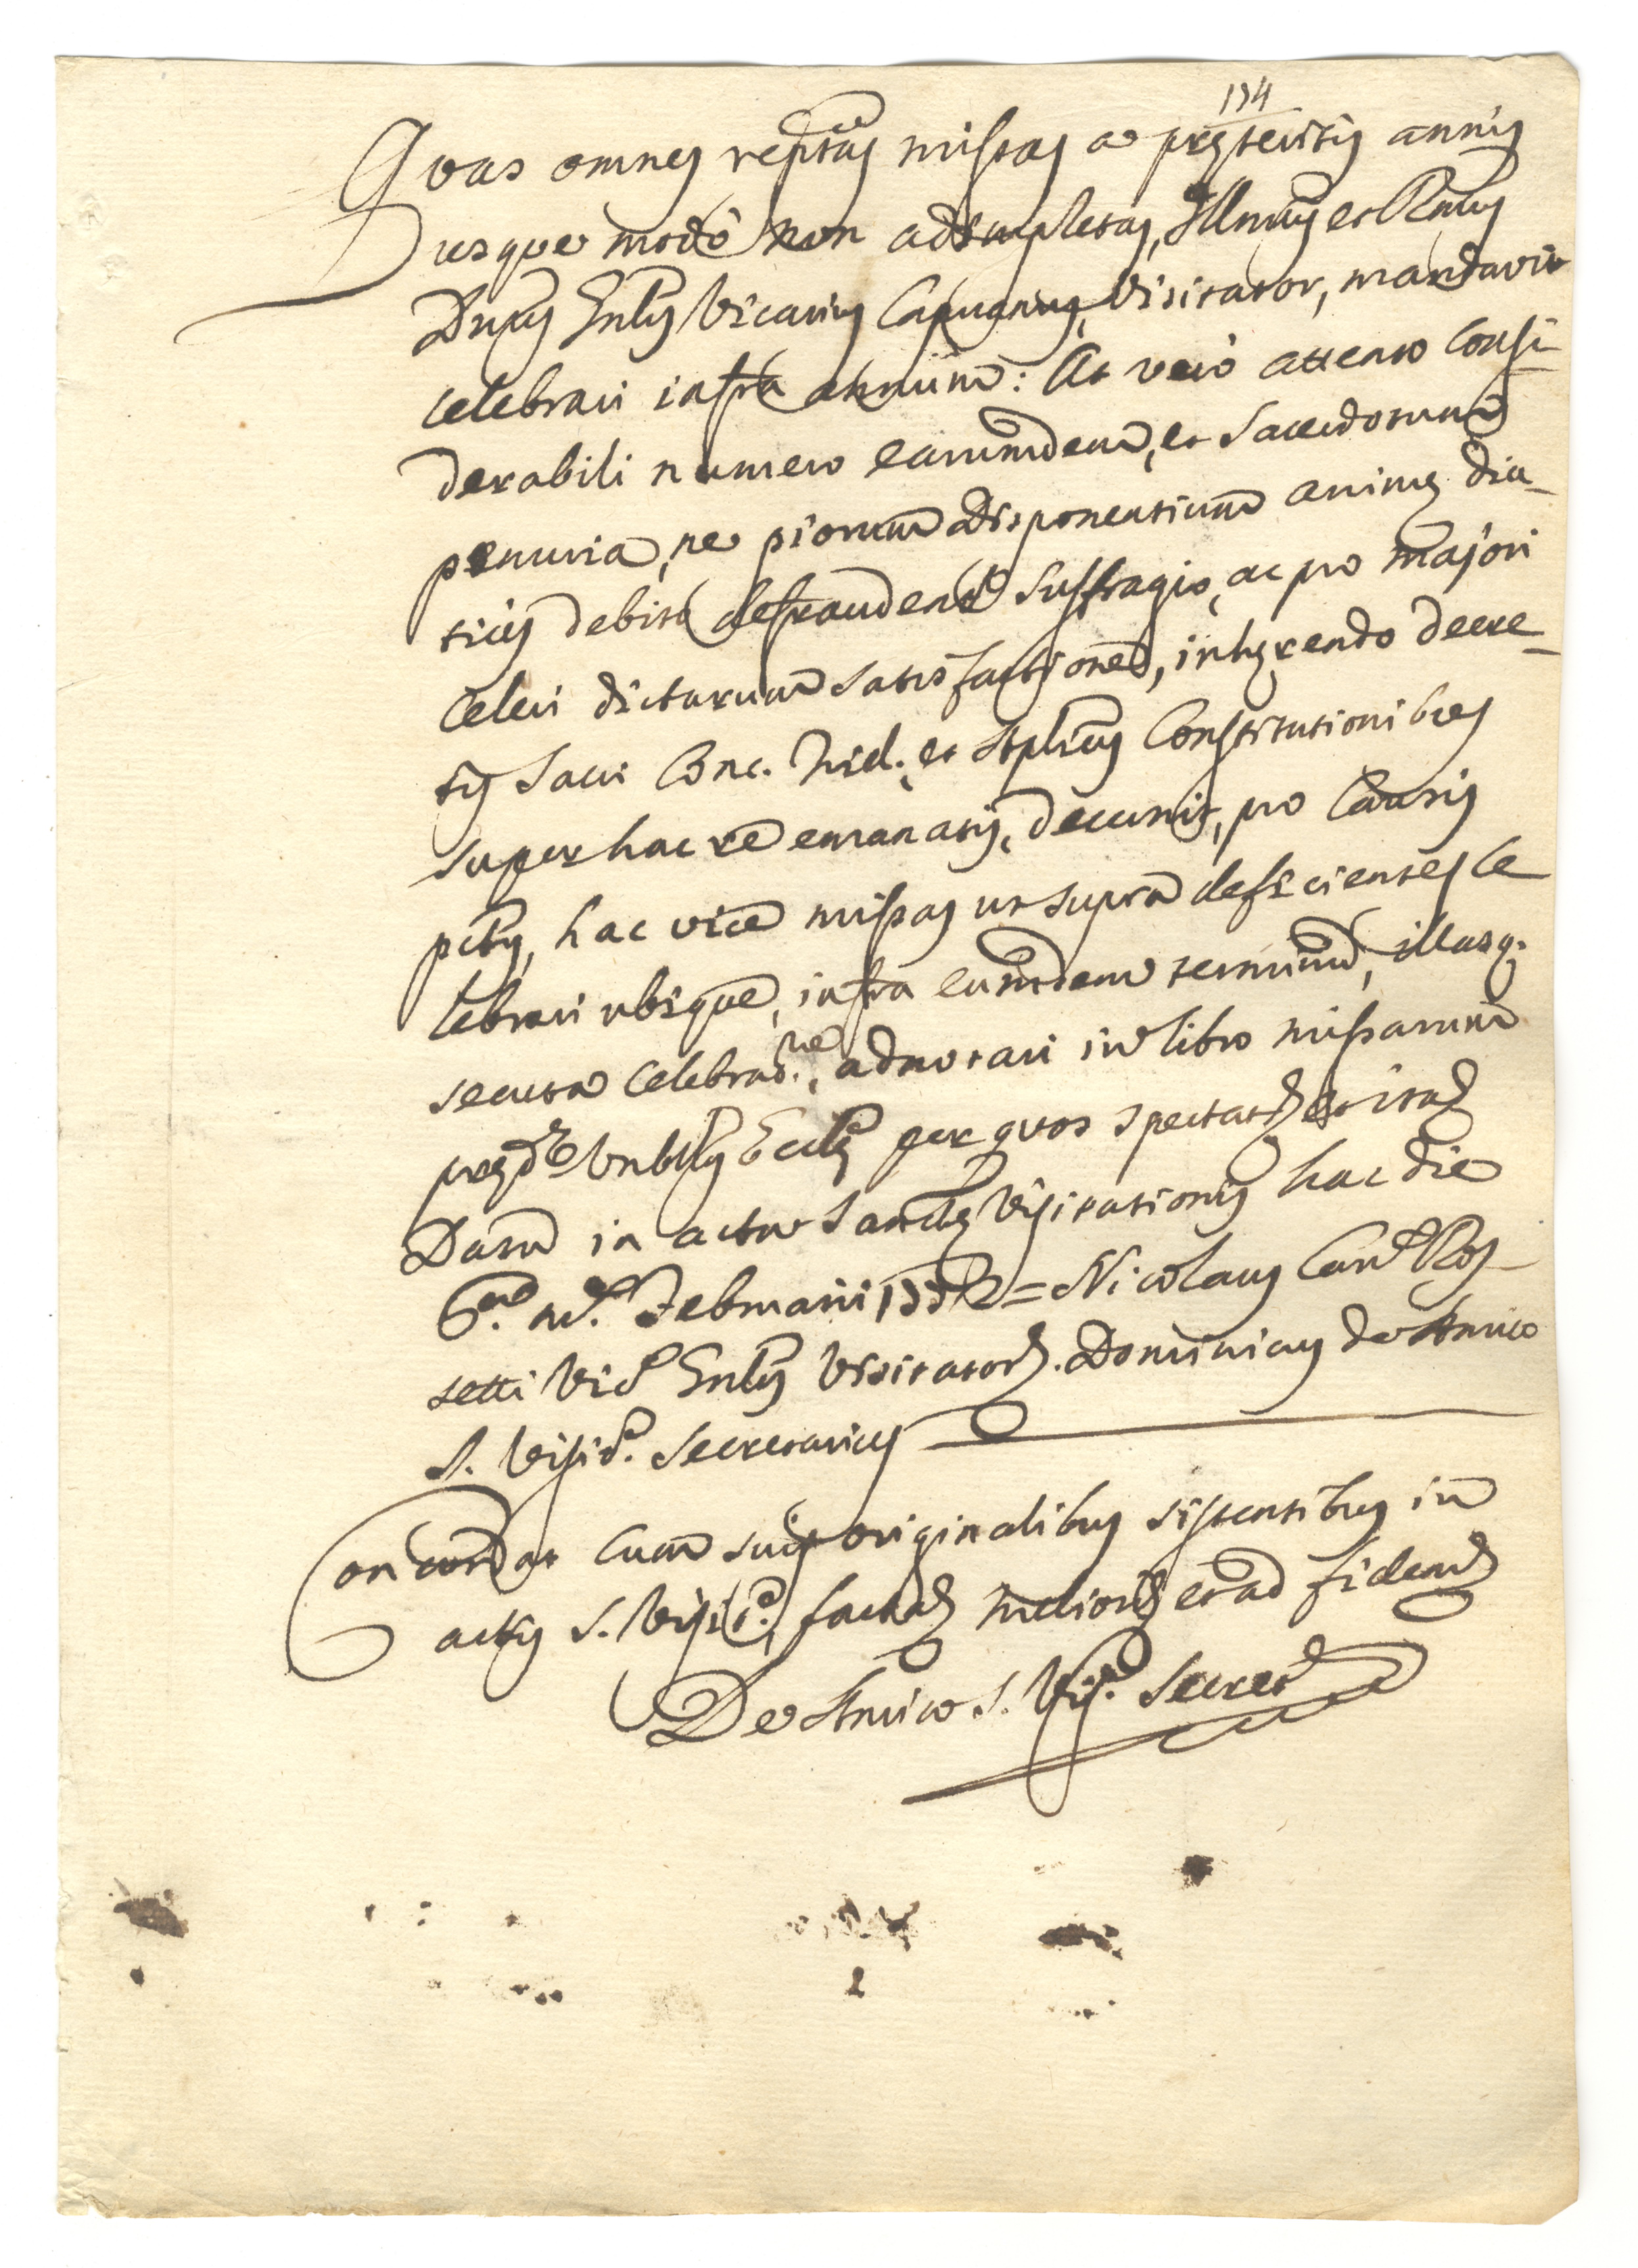 174
Quas omnes rep.tas missas a pręteritis annis
usque modò non adimpletas, Illmus et Rmus
Dnus Gnlis Vicarius Capuanus, Visitator, mandavit
celebrari infra annum: At verò attento consi-
derabili numero earumdem, et Sacerdotum
penuria, ne piorum Disponentium animę diu-
tius debito defraudentur suffragio, ac pro majori
celeri dictarum satisfactione, inhęrendo decre-
tis Sacri Conc. Trid., et Aplicis Constitutionibus
super hac re emanatis, decrevit, pro Causis
hac vice missas ut supra deficientes ce
lebrari ubique, infra eumdem terminum, illasq.
secuta celebrat.ne, adnotari in libro missarum
pręd.ę Vnblis Ecclę per quos spectat, et ita
Datum in actu Sanctę Visitationis hac die
6. m. Februarii = Nicolaus Can. Ros-
setti Vic. Gnlis Visitator. Dominicus de Amico
S. Visit. Secretarius
Concordat cum suis originalibus sistentibus in
actis S. Visit., facta meliori et ad fidem
De Amico S. Vis. Secret.